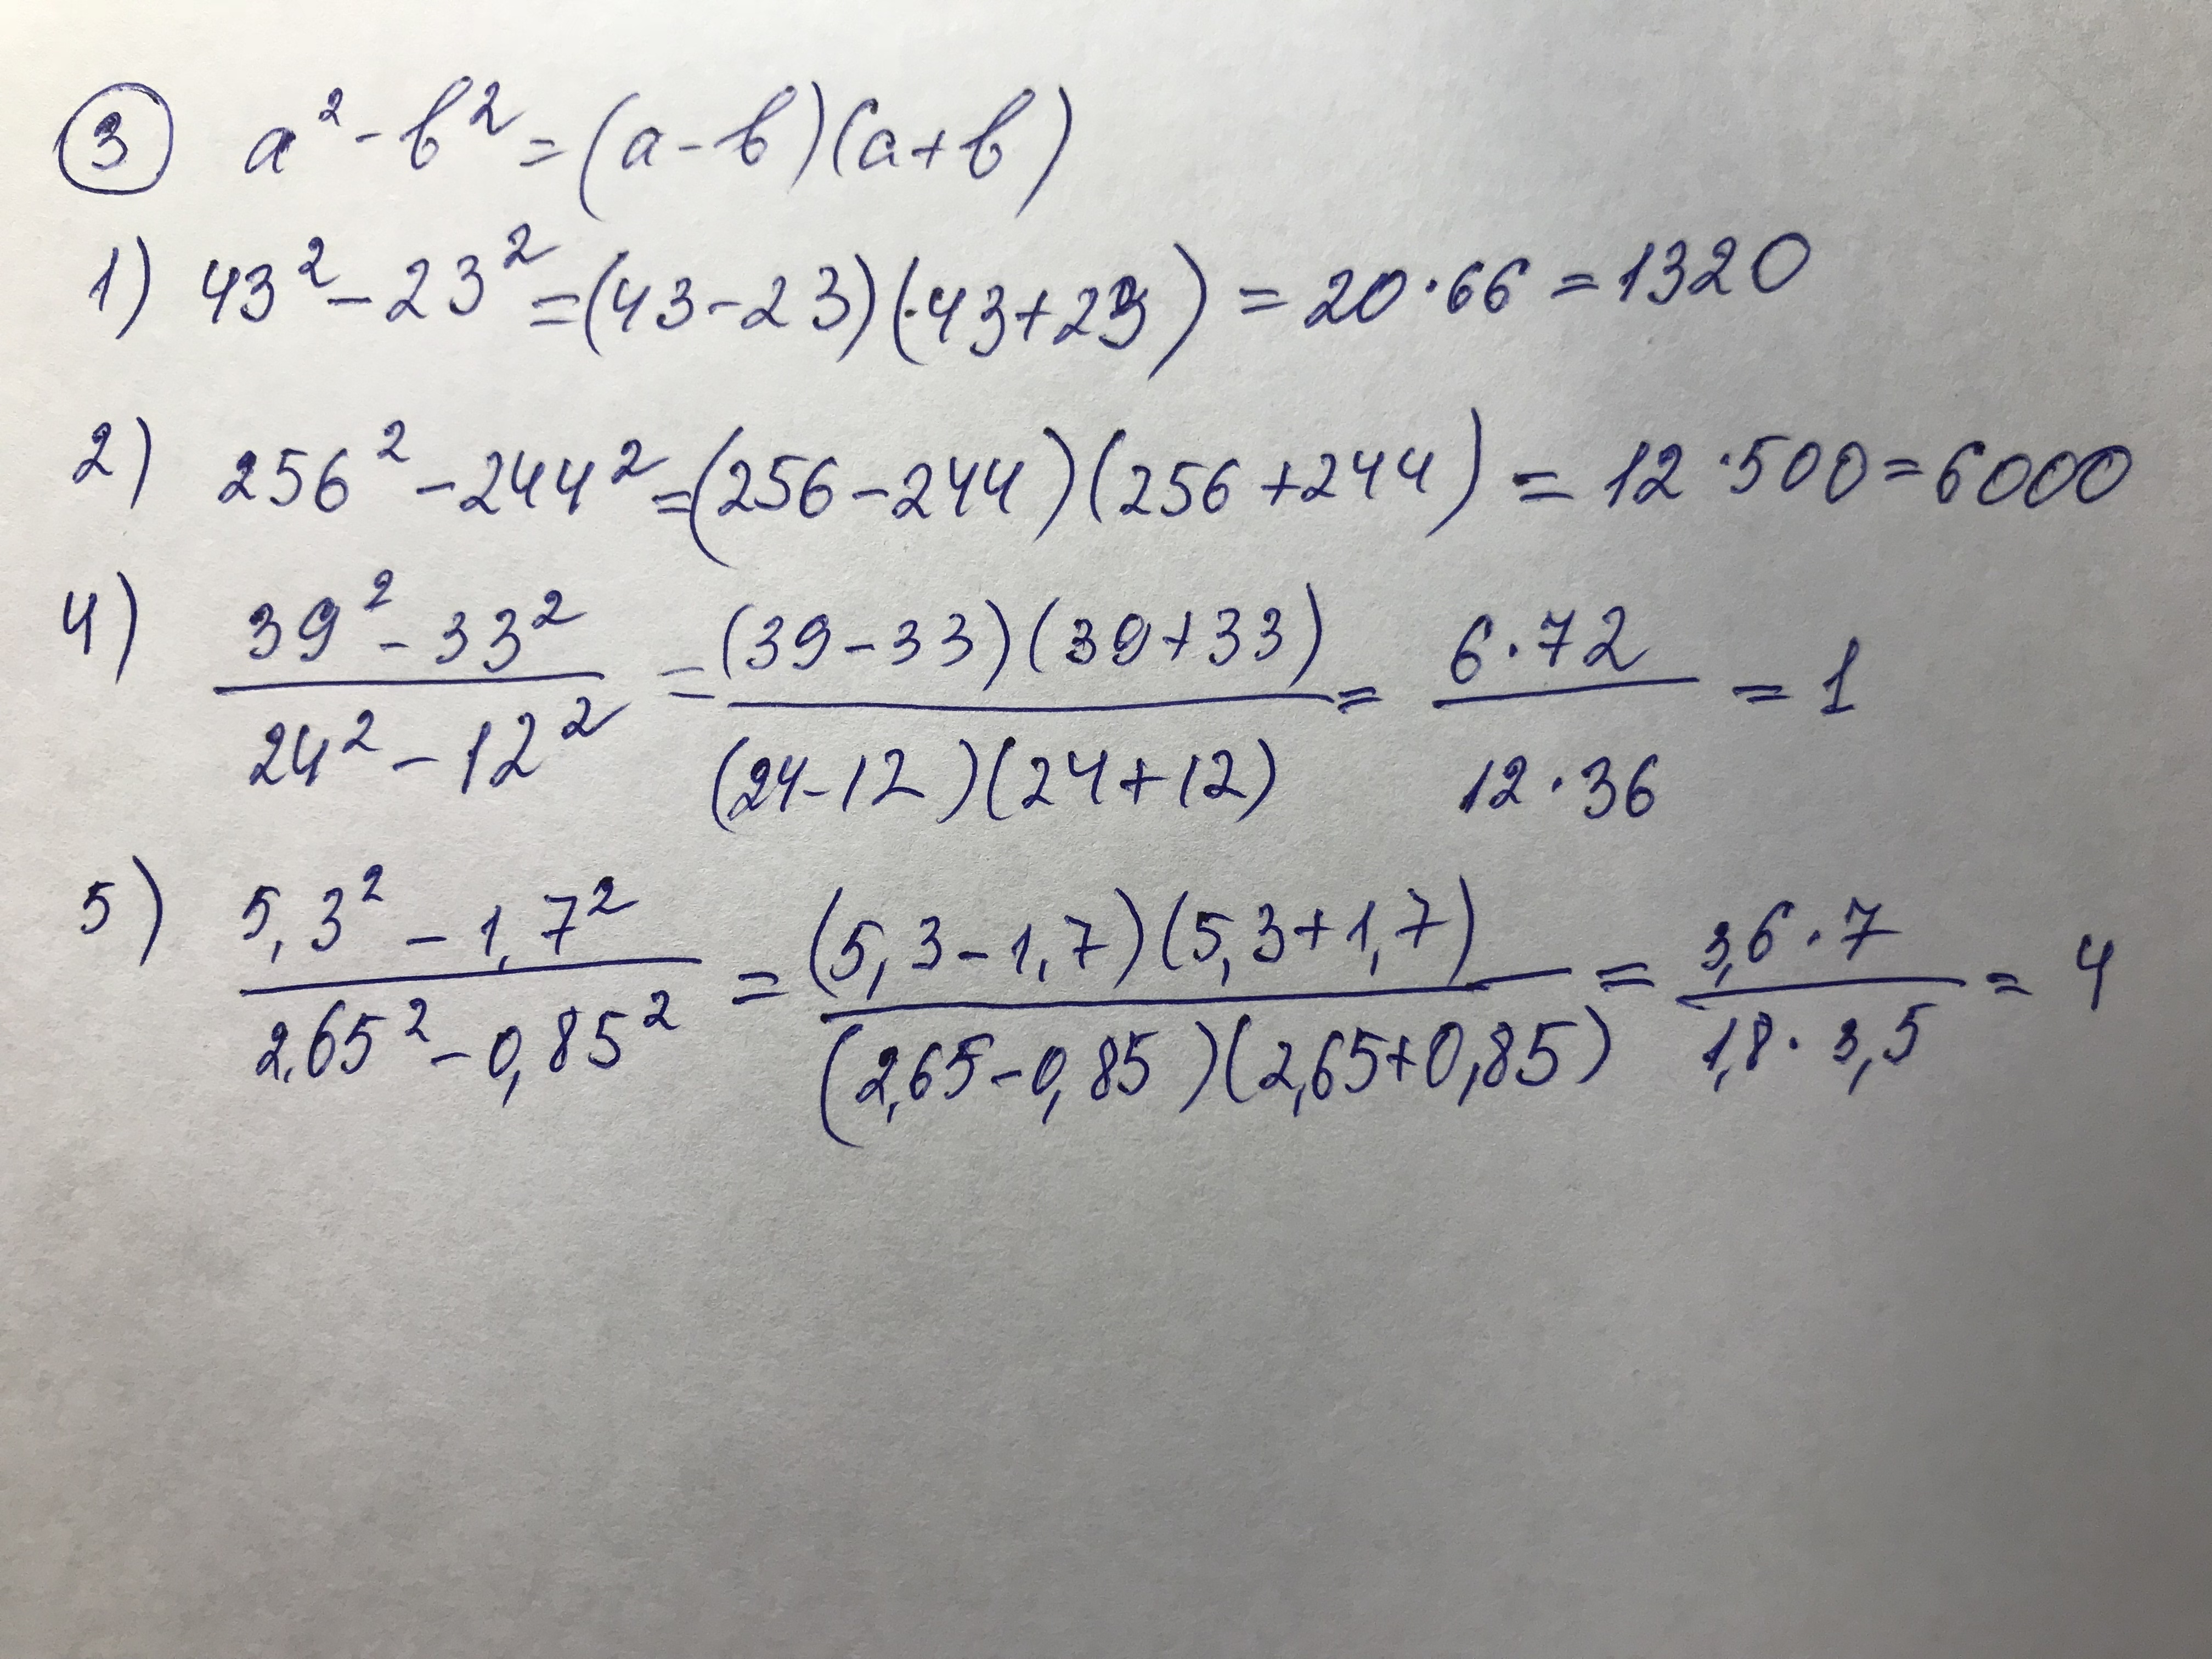 3 a² - b² = (a - b)(a + b)
1) 43² - 23² = (43 - 23)(43 + 23) = 20 · 66 = 1320
2) 256² - 244² = (256 - 244)(256 + 244) = 12 · 500 = 6000
4) (39² - 33²)/(24² - 12²) = ((39 - 33)(39 + 33))/((24 - 12)(24 + 12)) = (6 · 72)/(12 · 36) = 1
5) (5,3² - 1,7²)/(2,65² - 0,85²) = ((5,3 - 1,7)(5,3 + 1,7))/((2,65 - 0,85)(2,65 + 0,85)) = (3,6 · 7)/(1,8 · 3,5) = 4